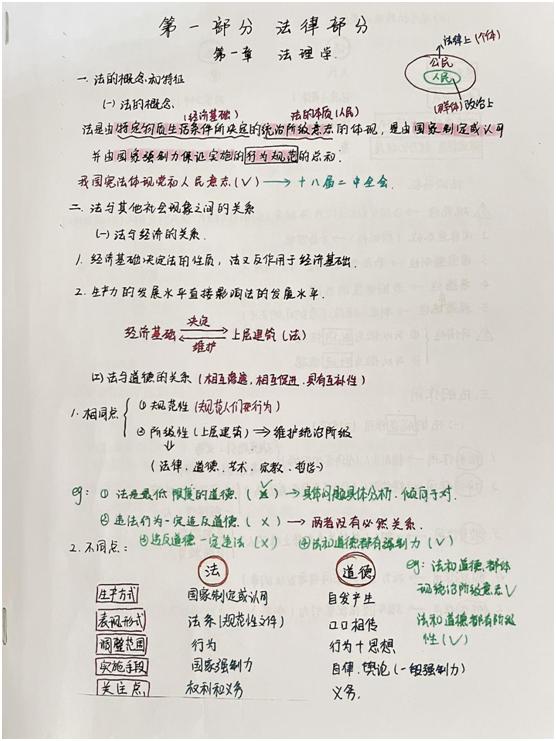 第一部分 法律部分
第一章 法理学
法律上(个体)
公民
人民
(群体)政治上
一. 法的概念和特征
(一) 法的概念
(经济基础) 法的本质(人民)
法是由特定物质生活条件所决定的统治阶级意志的体现, 是由国家制定或认可
并由国家强制力保证实施的行为规范的总和.
我国宪法体现党和人民意志(√) → 十八届二中全会.
二. 法与其他社会现象之间的关系
(一) 法与经济的关系.
1. 经济基础决定法的性质, 法又反作用于经济基础.
2. 生产力的发展水平直接影响法的发展水平.
决定
经济基础 上层建筑(法)
维护
(二) 法与道德的关系(相互渗透, 相互促进, 具有互补性)
1. 相同点
① 规范性(规范人们的行为)
② 阶级性(上层建筑) ⇒ 维护统治阶级
(法律、道德、艺术、宗教、哲学)
eg: ① 法是最低限度的道德.(√) → 具体问题具体分析. 倾向于对.
② 违法行为一定违反道德.(×) → 两者没有必然关系.
③ 违反道德一定违法(×) ④ 法和道德都有强制力(√)
2. 不同点:
法 道德
生产方式 国家制定或认可 自发产生
表现形式 法条(规范性文件) 口口相传
调整范围 行为 行为+思想
实施手段 国家强制力 自律、舆论(一般强制力)
关注点 权利和义务 义务.
eg: 法和道德都体
现统治阶级意志√
法和道德都有阶级
性(√)